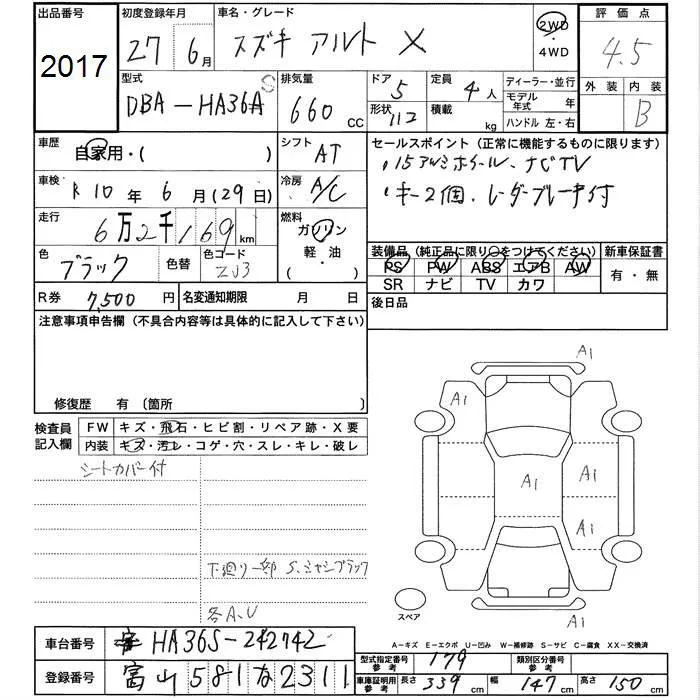 出品番号 初度登録年月 車名・グレード 評価点
2017 27 6月 スズキ アルト X 2WD ・4WD 4.5
型式 排気量 ドア 5 定員 4人 ディーラー・並行 外装 内装
DBA-HA36S 660 CC 形状 112 積載 kg モデル年式 年 B
ハンドル 左・右
車歴 自家用・( ) シフト AT セールスポイント(正常に機能するものに限ります)
・15アルミホイール、ナビTV
車検 R10年6月(29日) 冷房 A/C ・キー2個、レーダーブレーキ付
走行 6万2千169km 燃料 ガソリン 軽・油 ・( )
装備品(純正品に限り○をつけてください) 新車保証書
色 ブラック 色替 色コード ZJ3 PS PW ABS エアB AW 有・無
SR ナビ TV カワ
R券 7,500円 名変通知期限 月 日 後日品
注意事項申告欄(不具合内容等は具体的に記入して下さい)
修復歴 有 (箇所
A1
A1
A1
A1
A1
A1
検査員記入欄 FW キズ・飛石・ヒビ割・リペア跡・X要
内装 キズ・汚レ・コゲ・穴・スレ・キレ・破レ
シートカバー付
下廻り一部S、シャシブラック
各A、U
スペア
車台番号 HA36S-242742 A-キズ E-エクボ U-凹み W-補修跡 S-サビ C-腐食 XX-交換済
型式指定番号 参考 179 類別区分番号 参考
登録番号 富山 581 な 2311 車庫証明用 参考 長さ 339cm 幅 147cm 高さ 150cm